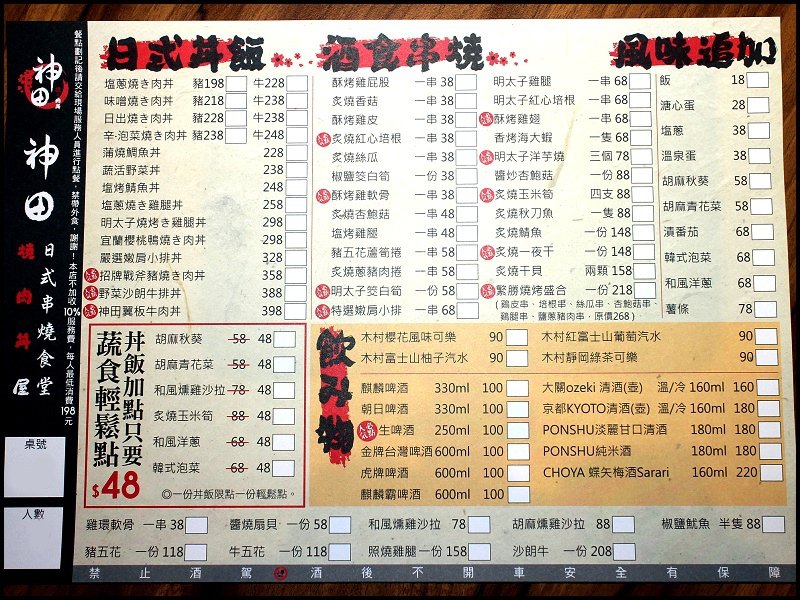 神田
肉丼
神田
日式串燒食堂
燒肉丼屋
餐點劃記後請交給現場服務人員進行點餐，禁帶外食，謝謝！本店不加收10%服務費，每人最低消費198元
桌號
人數
日式丼飯
塩蔥燒き肉丼 豬198 牛228
味噌燒き肉丼 豬218 牛238
日出燒き肉丼 豬228 牛238
辛·泡菜燒き肉丼 豬238 牛248
蒲燒鯛魚丼 228
蔬活野菜丼 238
塩烤鯖魚丼 248
塩蔥燒き雞腿丼 258
明太子燒烤き雞腿丼 298
宜蘭櫻桃鴨燒き肉丼 298
嚴選嫩肩小排丼 328
招牌戰斧豬燒き肉丼 358
野菜沙朗牛排丼 388
神田翼板牛肉丼 398
酒食串燒
酥烤雞屁股 一串 38
炙燒香菇 一串 38
酥烤雞皮 一串 38
炙燒紅心培根 一串 38
炙燒絲瓜 一串 38
椒鹽筊白筍 一份 38
酥烤雞軟骨 一串 38
炙燒杏鮑菇 一串 48
塩烤雞腿 一串 48
豬五花蘆筍捲 一串 58
炙燒蔥豬肉捲 一串 58
明太子筊白筍 一份 58
特選嫩肩小排 一串 68
明太子雞腿 一串 68
明太子紅心培根 一串 68
酥烤雞翅 一串 68
香烤海大蝦 一隻 68
明太子洋芋燒 三個 78
醬炒杏鮑菇 一份 88
炙燒玉米筍 四支 88
炙燒秋刀魚 一隻 88
炙燒鯖魚 一份 148
炙燒一夜干 一隻 148
炙燒干貝 兩顆 158
繁勝燒烤盛合 一份 218
(雞皮串、培根串、絲瓜串、杏鮑菇串、
雞腿串、鹽蔥豬肉串，原價268)
風味追加
飯 18
溏心蛋 28
塩蔥 38
溫泉蛋 38
胡麻秋葵 58
胡麻青花菜 58
漬番茄 68
韓式泡菜 68
和風洋蔥 68
薯條 78
丼飯加點只要
蔬食輕鬆點
$48
胡麻秋葵 58 48
胡麻青花菜 58 48
和風燻雞沙拉 78 48
炙燒玉米筍 88 48
和風洋蔥 68 48
韓式泡菜 68 48
◎一份丼飯限點一份輕鬆點。
飲み物
木村櫻花風味可樂 90
木村富士山柚子汽水 90
木村紅富士山葡萄汽水 90
木村靜岡綠茶可樂 90
麒麟啤酒 330ml 100
朝日啤酒 330ml 100
生啤酒 250ml 100
金牌台灣啤酒 600ml 100
虎牌啤酒 600ml 100
麒麟霸啤酒 600ml 100
大關ozeki 清酒(壺) 溫/冷 160ml 160
京都KYOTO清酒(壺) 溫/冷 160ml 180
PONSHU淡麗甘口清酒 180ml 180
PONSHU純米酒 180ml 180
CHOYA 蝶矢梅酒Sarari 160ml 220
雞環軟骨 一串 38
醬燒扇貝 一份 58
和風燻雞沙拉 78
胡麻燻雞沙拉 88
椒鹽魷魚 半隻 88
豬五花 一份 118
牛五花 一份 118
照燒雞腿 一份 158
沙朗牛 一份 208
禁止酒駕 酒後不開車安全有保障